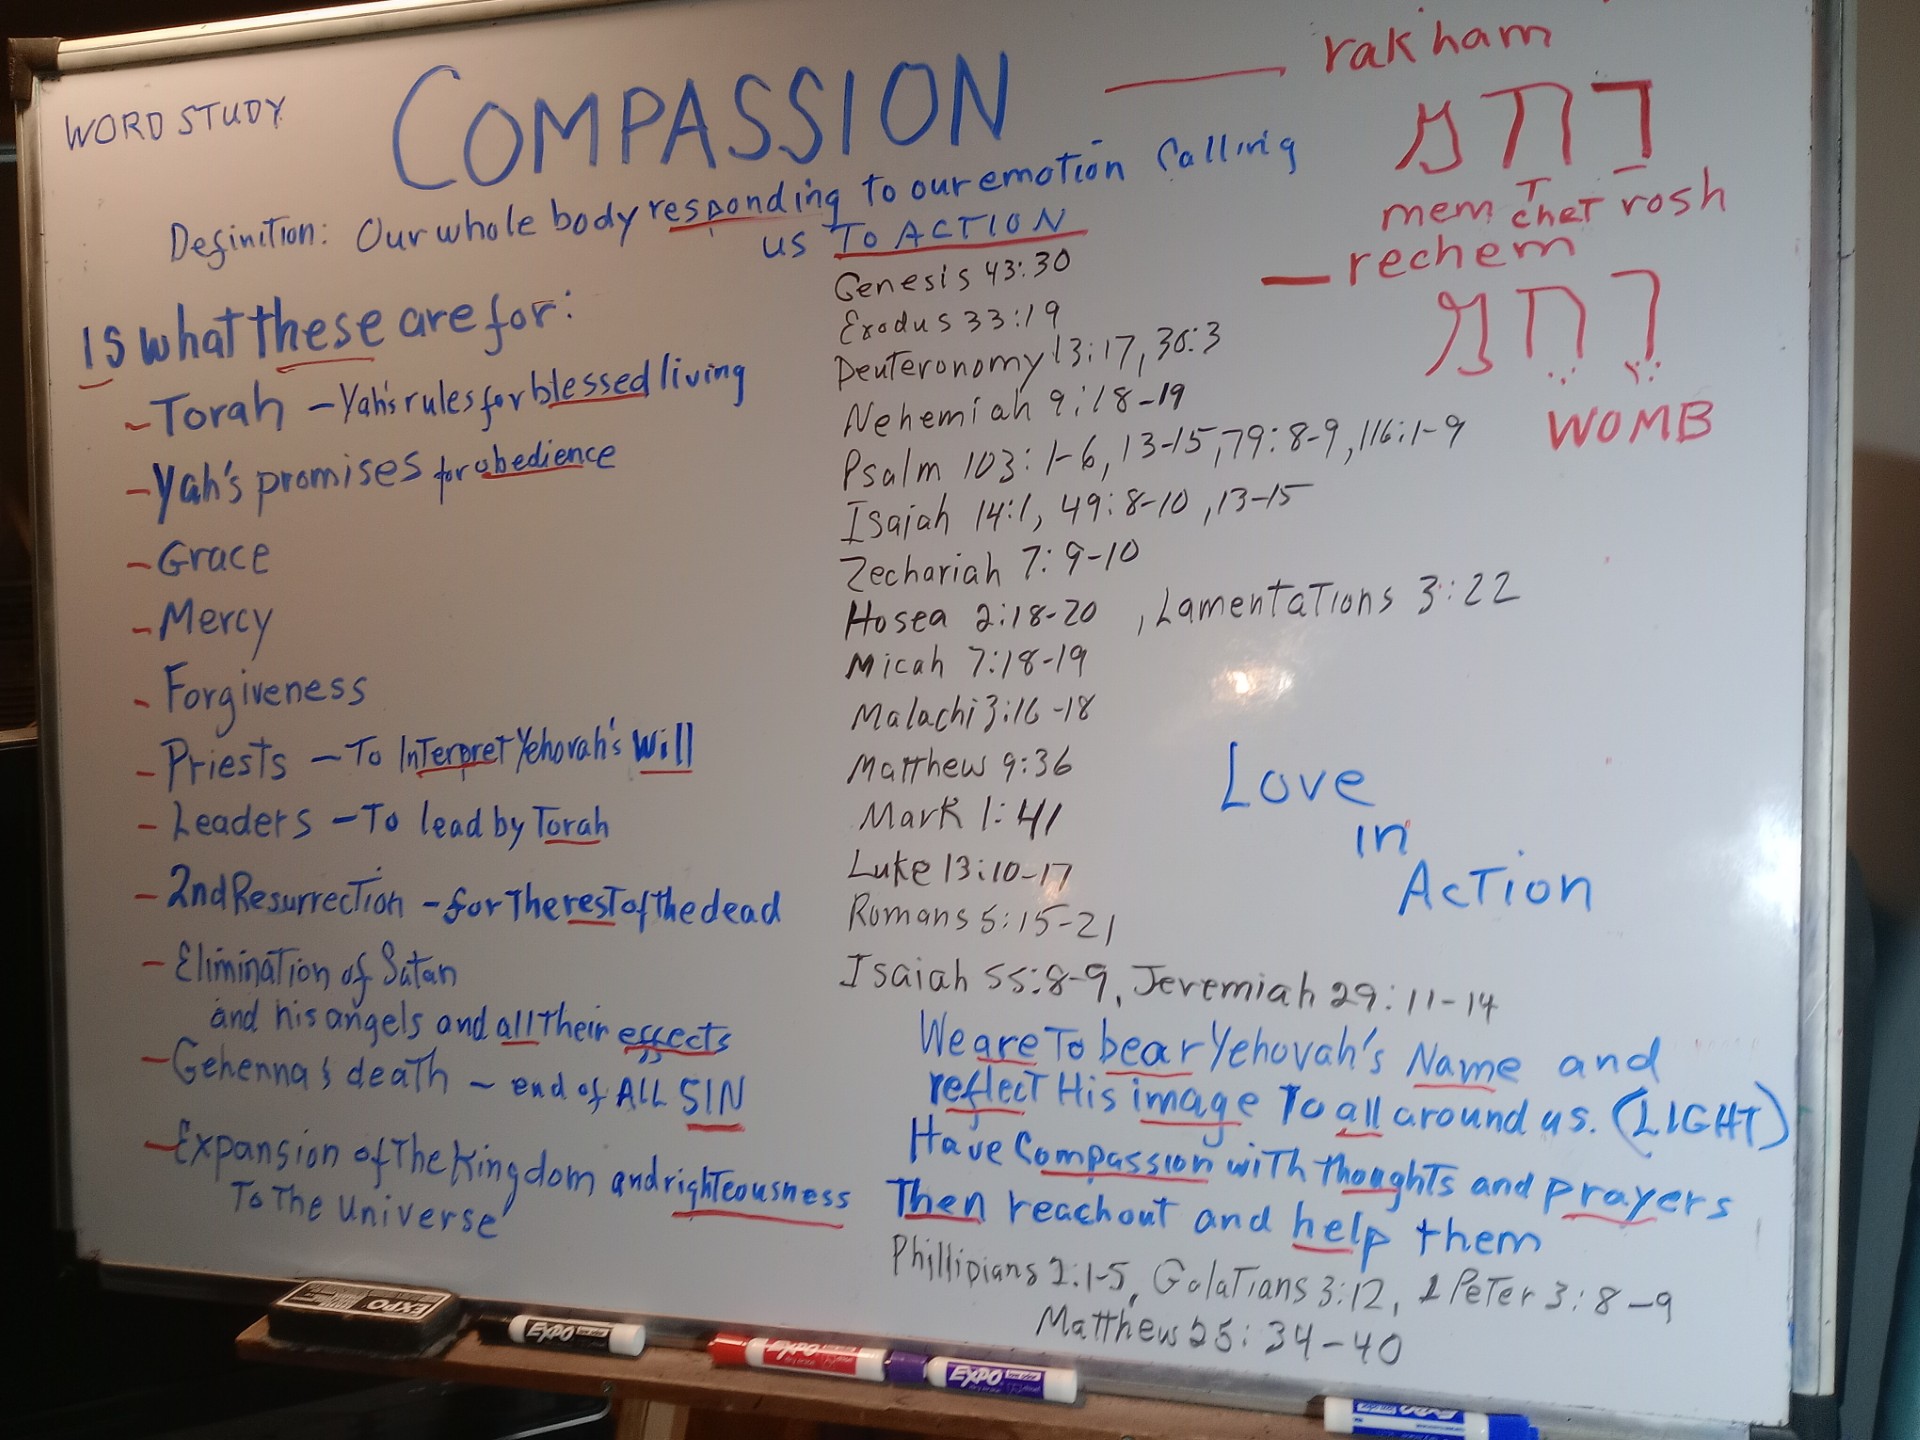 WORD STUDY
COMPASSION
rakham
רחמ
mem chet rosh
Definition: Our whole body responding to our emotion Calling
us To ACTION
rechem
רחמ
WOMB
IS what these are for:
- Torah - Yah's rules for blessed living
- Yah's promises for obedience
- Grace
- Mercy
- Forgiveness
- Priests - To Interpret Yehovah's Will
- Leaders - To lead by Torah
- 2nd Resurrection - for The rest of the dead
- Elimination of Satan
and his angels and all Their effects
- Gehenna & death - end of ALL SIN
- Expansion of The Kingdom and righteousness
To The Universe
Genesis 43:30
Exodus 33:19
Deuteronomy 13:17, 30:3
Nehemiah 9:18-19
Psalm 103:1-6, 13-15, 79:8-9, 116:1-9
Isaiah 14:1, 49:8-10, 13-15
Zechariah 7:9-10
Hosea 2:18-20, Lamentations 3:22
Micah 7:18-19
Malachi 3:16-18
Matthew 9:36
Mark 1:41
Luke 13:10-17
Romans 5:15-21
Isaiah 55:8-9, Jeremiah 29:11-14
Love
in
Action
We are To bear Yehovah's Name and
reflect His image To all around us. (LIGHT)
Have Compassion with thoughts and prayers
Then reachout and help them
Phillipians 2:1-5, Galatians 3:12, 1 Peter 3:8-9
Matthew 25:34-40
EXPO
EXPO
EXPO
EXPO
EXPO